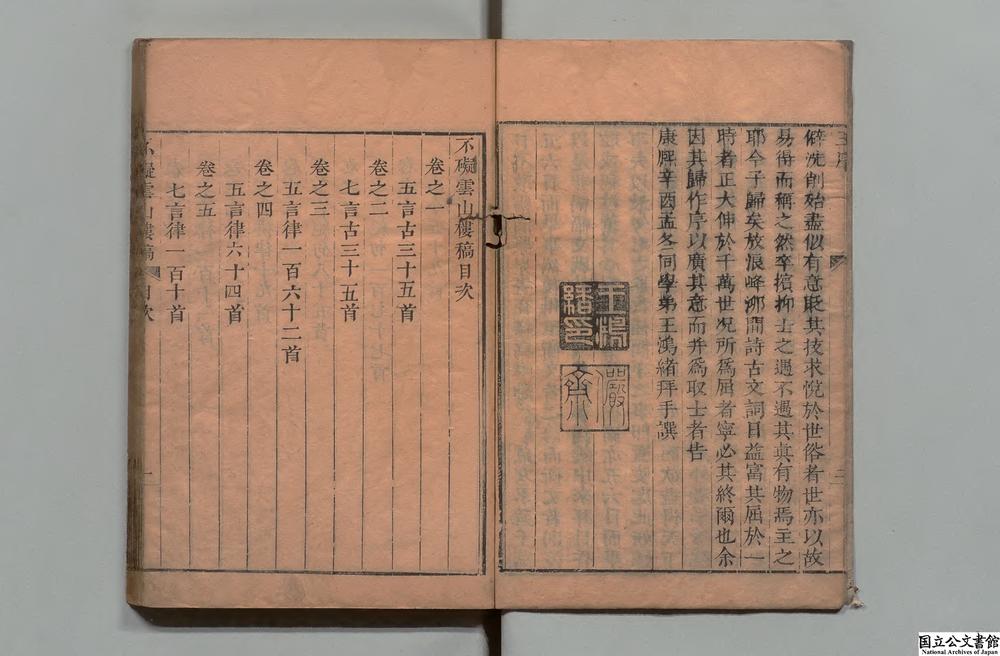 僻洗削始盡似有意取其技求悅於世俗者世亦以故
易得而稱之然卒擯抑士之遇不遇其眞有物焉主之
耶今子歸矣放浪峰泖間詩古文詞日益富其屈於一
時者正大伸於千萬世况所爲屈者寧必其終爾也余
因其歸作序以廣其意而并爲取士者告
康熙辛酉孟冬同學弟王鴻緒拜手譔
王鴻
緒印
儼
齋
二
不礙雲山樓稿目次
卷之一
五言古三十五首
卷之二
七言古三十五首
卷之三
五言律一百六十二首
卷之四
五言律六十四首
卷之五
七言律一百十首
不礙雲山樓稿 目次
一
国立公文書館
National Archives of Japan